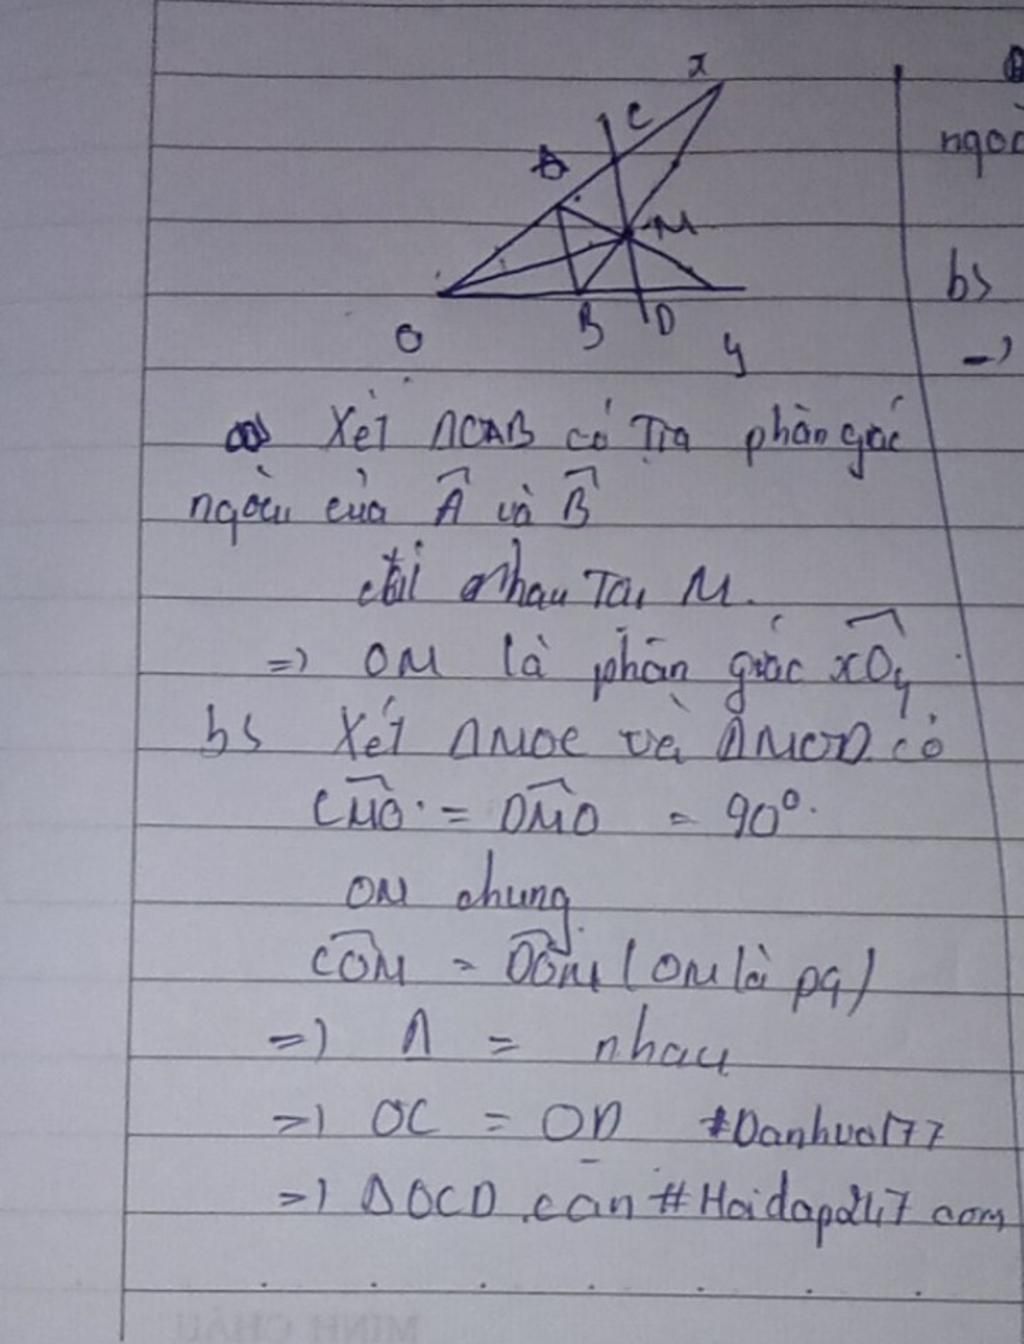 x
C
A
M
O
B
D
y
a) Xét ΔOAB có Tia phân giác
ngoài của Â và B̂
cắt nhau Tại M.
=> OM là phân giác xÔy
b) Xét ΔMOC và ΔMOD có
CM̂O = DM̂O = 90°.
OM chung
CÔM = DÔM (OM là pg)
=> Δ = nhau
=> OC = OD #Danhvol77
=> ΔOCD cân #Hoidap247 com
ngoà
b)
=>